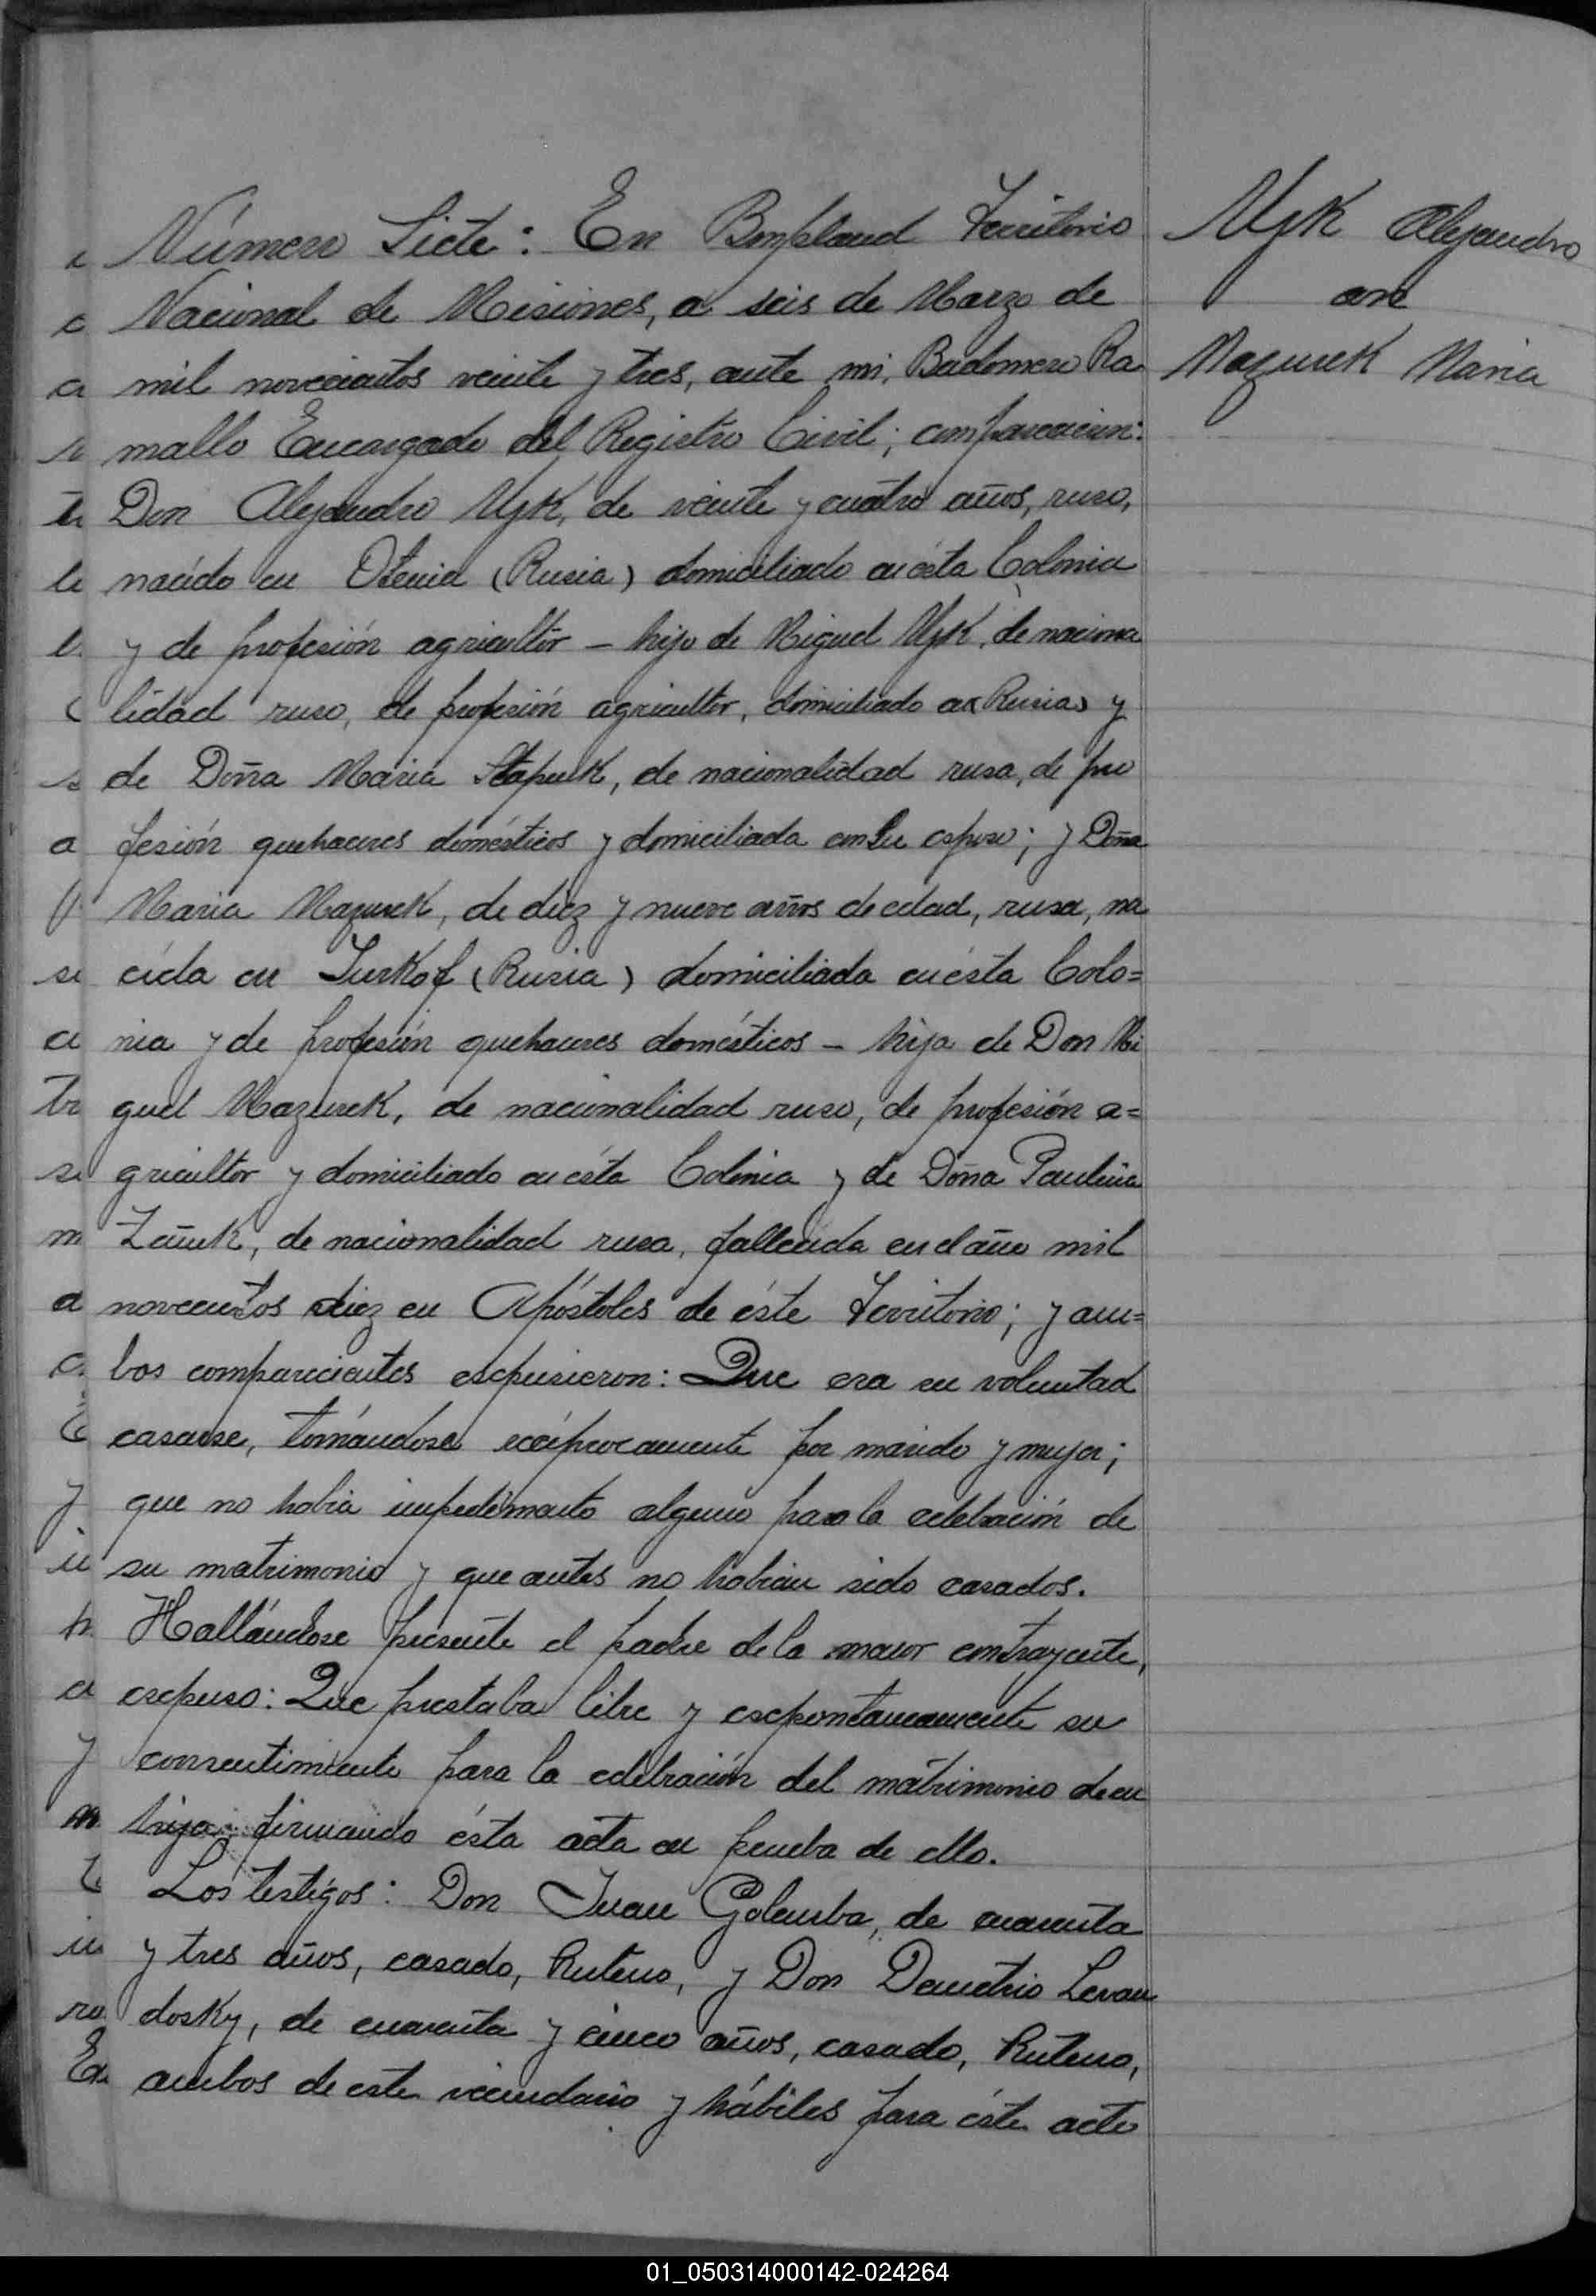 Número Siete: En Bompland Territorio
Nacional de Misiones, a seis de Marzo de
mil novecientos veinte y tres, ante mi, Badomero Ra
mallo Encargado del Registro Civil; comparecieron:
Don Alejandro Ujk, de veinte y cuatro años, ruso,
nacido en (Rusia) domiciliado en ésta Colonia
y de profesión agricultor – hijo de Miguel Ujk, de naciona
lidad ruso, de profesión agricultor, domiciliado en Rusia y
de Doña Maria de nacionalidad rusa, de pro
fesión quehaceres domésticos y domiciliada con su esposo; y Doña
Maria Mazurek, de diez y nueve años de edad, rusa, na
cida en (Rusia) domiciliada en ésta Colo=
nia y de profesión quehaceres domésticos – hija de Don Mi
guel Mazurek, de nacionalidad ruso, de profesión a=
gricultor y domiciliado en ésta Colonia y de Doña Paulina
de nacionalidad rusa, fallecida en el año mil
novecientos diez en Apóstoles de éste Territorio; y am=
bos comparecientes escpusieron: Que era su voluntad
casarse, tomándose recíprocamente por marido y mujer;
que no habia impedimento alguno para la celebración de
su matrimonio y que antes no habian sido casados.
Hallándose presente el padre de la menor contrayente,
escpuso: Que prestaba libre y escpontaneamente su
consentimiento para la celebración del matrimonio de su
hija firmando ésta acta en prueba de ello.
Los testigos: Don Juan Golemba, de cuarenta
y tres años, casado, Ruteno, y Don Demetrio Levan
dosky, de cuarenta y cinco años, casado, Ruteno,
ambos de este vecindario y hábiles para éste acto
Ujk Alejandro
con
Mazurek Maria
01_050314000142-024264